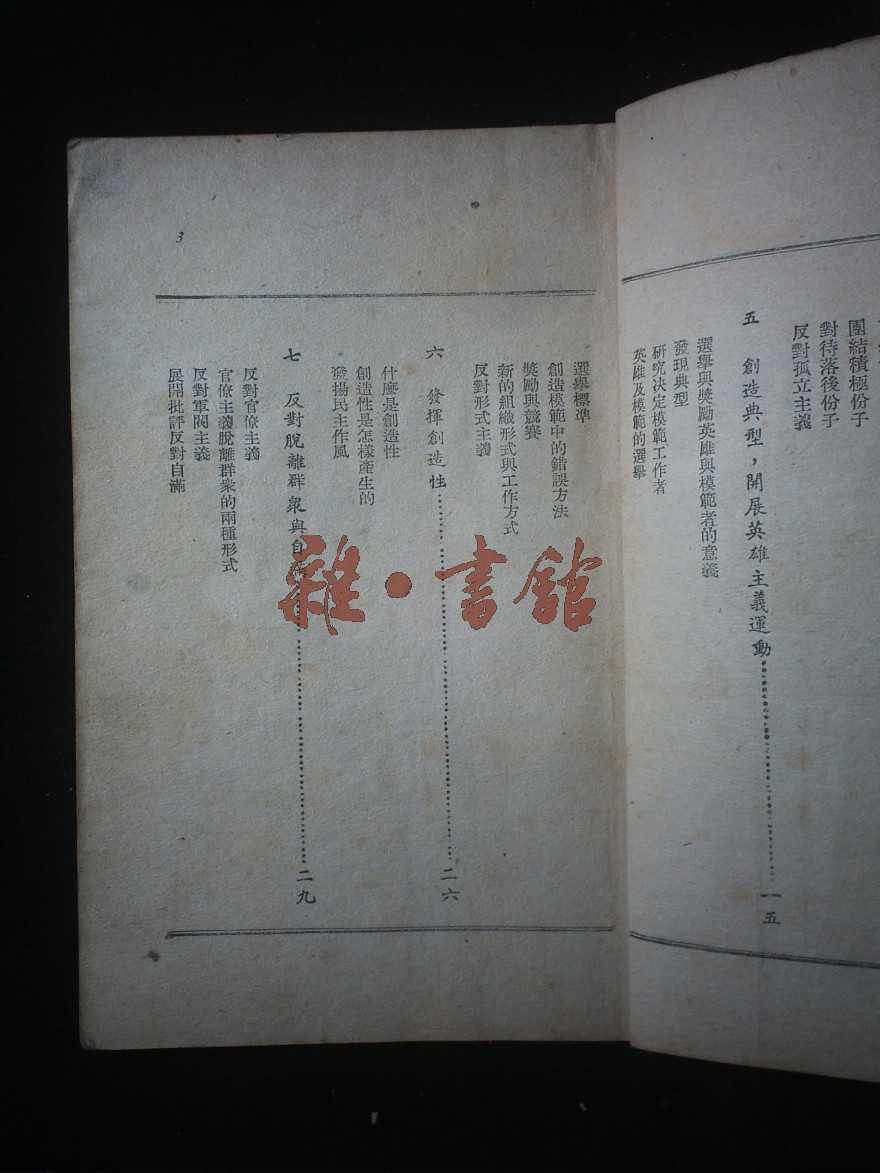 團結積極份子
對待落後份子
反對孤立主義
五 創造典型，開展英雄主義運動 一五
選舉與獎勵英雄與模範者的意義
發現典型
研究決定模範工作者
英雄及模範的選舉
3
選舉標準
創造模範中的錯誤方法
獎勵與競賽
新的組織形式與工作方式
反對形式主義
六 發揮創造性 二六
什麼是創造性
創造性是怎樣產生的
發揚民主作風
七 反對脫離群眾與自滿 二九
反對官僚主義
官僚主義脫離群衆的兩種形式
反對軍閥主義
展開批評反對自滿
雜·書館